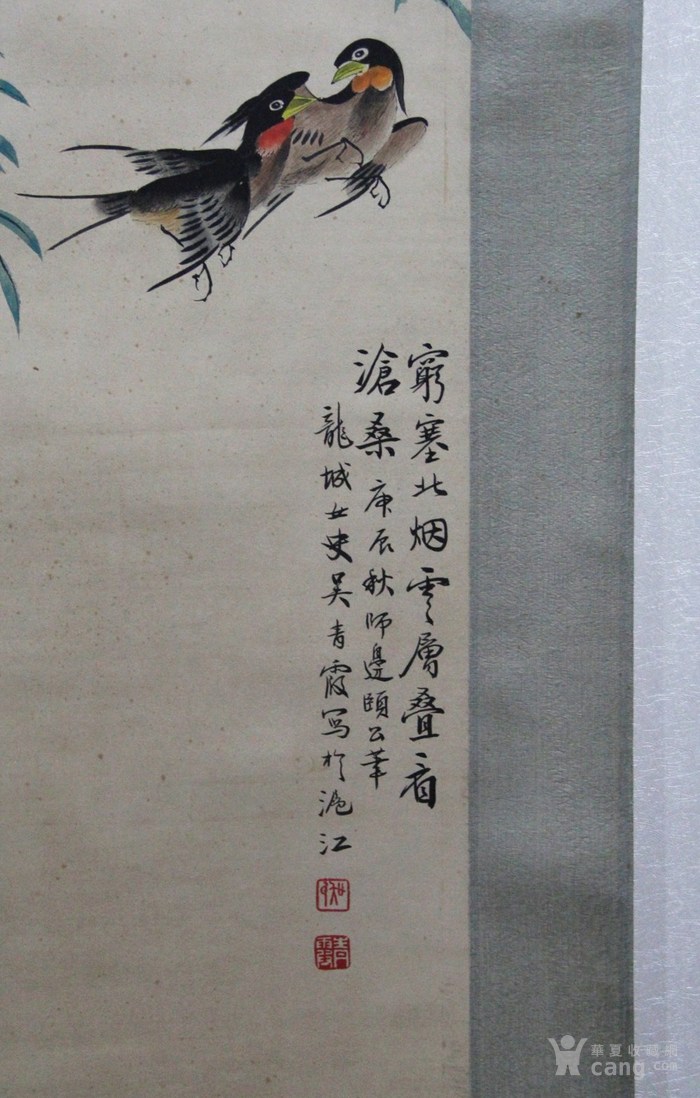 窮塞北烟雲層叠看
滄桑 庚辰秋師邊頤公筆
龍城女史吳青霞写於滬江
青霞
華夏收藏網
cang.com